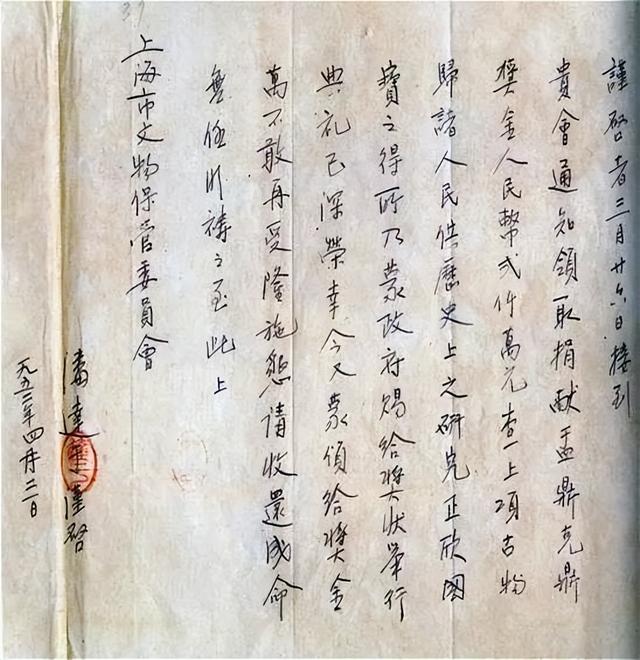 謹啓者三月廿六日接到
貴會通知領取捐献盂鼎克鼎
奬金人民幣弍仟萬元查上項古物
歸諸人民供歷史上之研究正欣國
寶之得所乃蒙政府賜給奬狀舉行
典礼已深榮幸今又蒙頒給奬金
萬不敢再受隆施懇請收還成命
無任祈禱之至此上
上海市文物保管委員會
潘達于謹啓
一九五二年四月二日